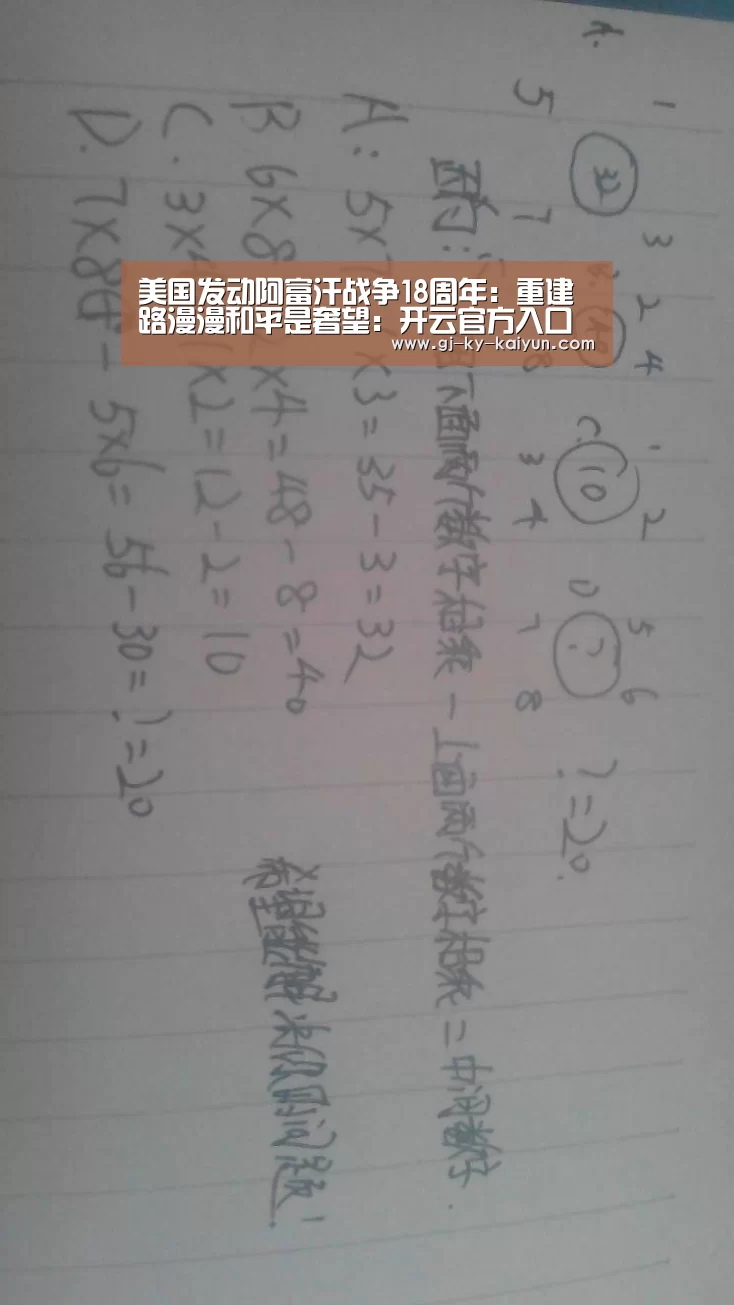 A. 1 3 B. 2 4 C. 1 2 D 5 6
32 40 10 ? ?=20.
5 7 6 8 3 4 7 8
下面两个数字相乘-上面两个数字相乘=中间数字.
A: 5×7 ×3=35-3=32
B 6×8 ×4=48-8=40
C. 3× ×2=12-2=10
D. 7×8 - 5×6=56-30=?=20
希望能解决你的问题!
美国发动阿富汗战争18周年：重建
路漫漫和平是奢望：开云官方入口
www.gj-ky-kaiyun.com